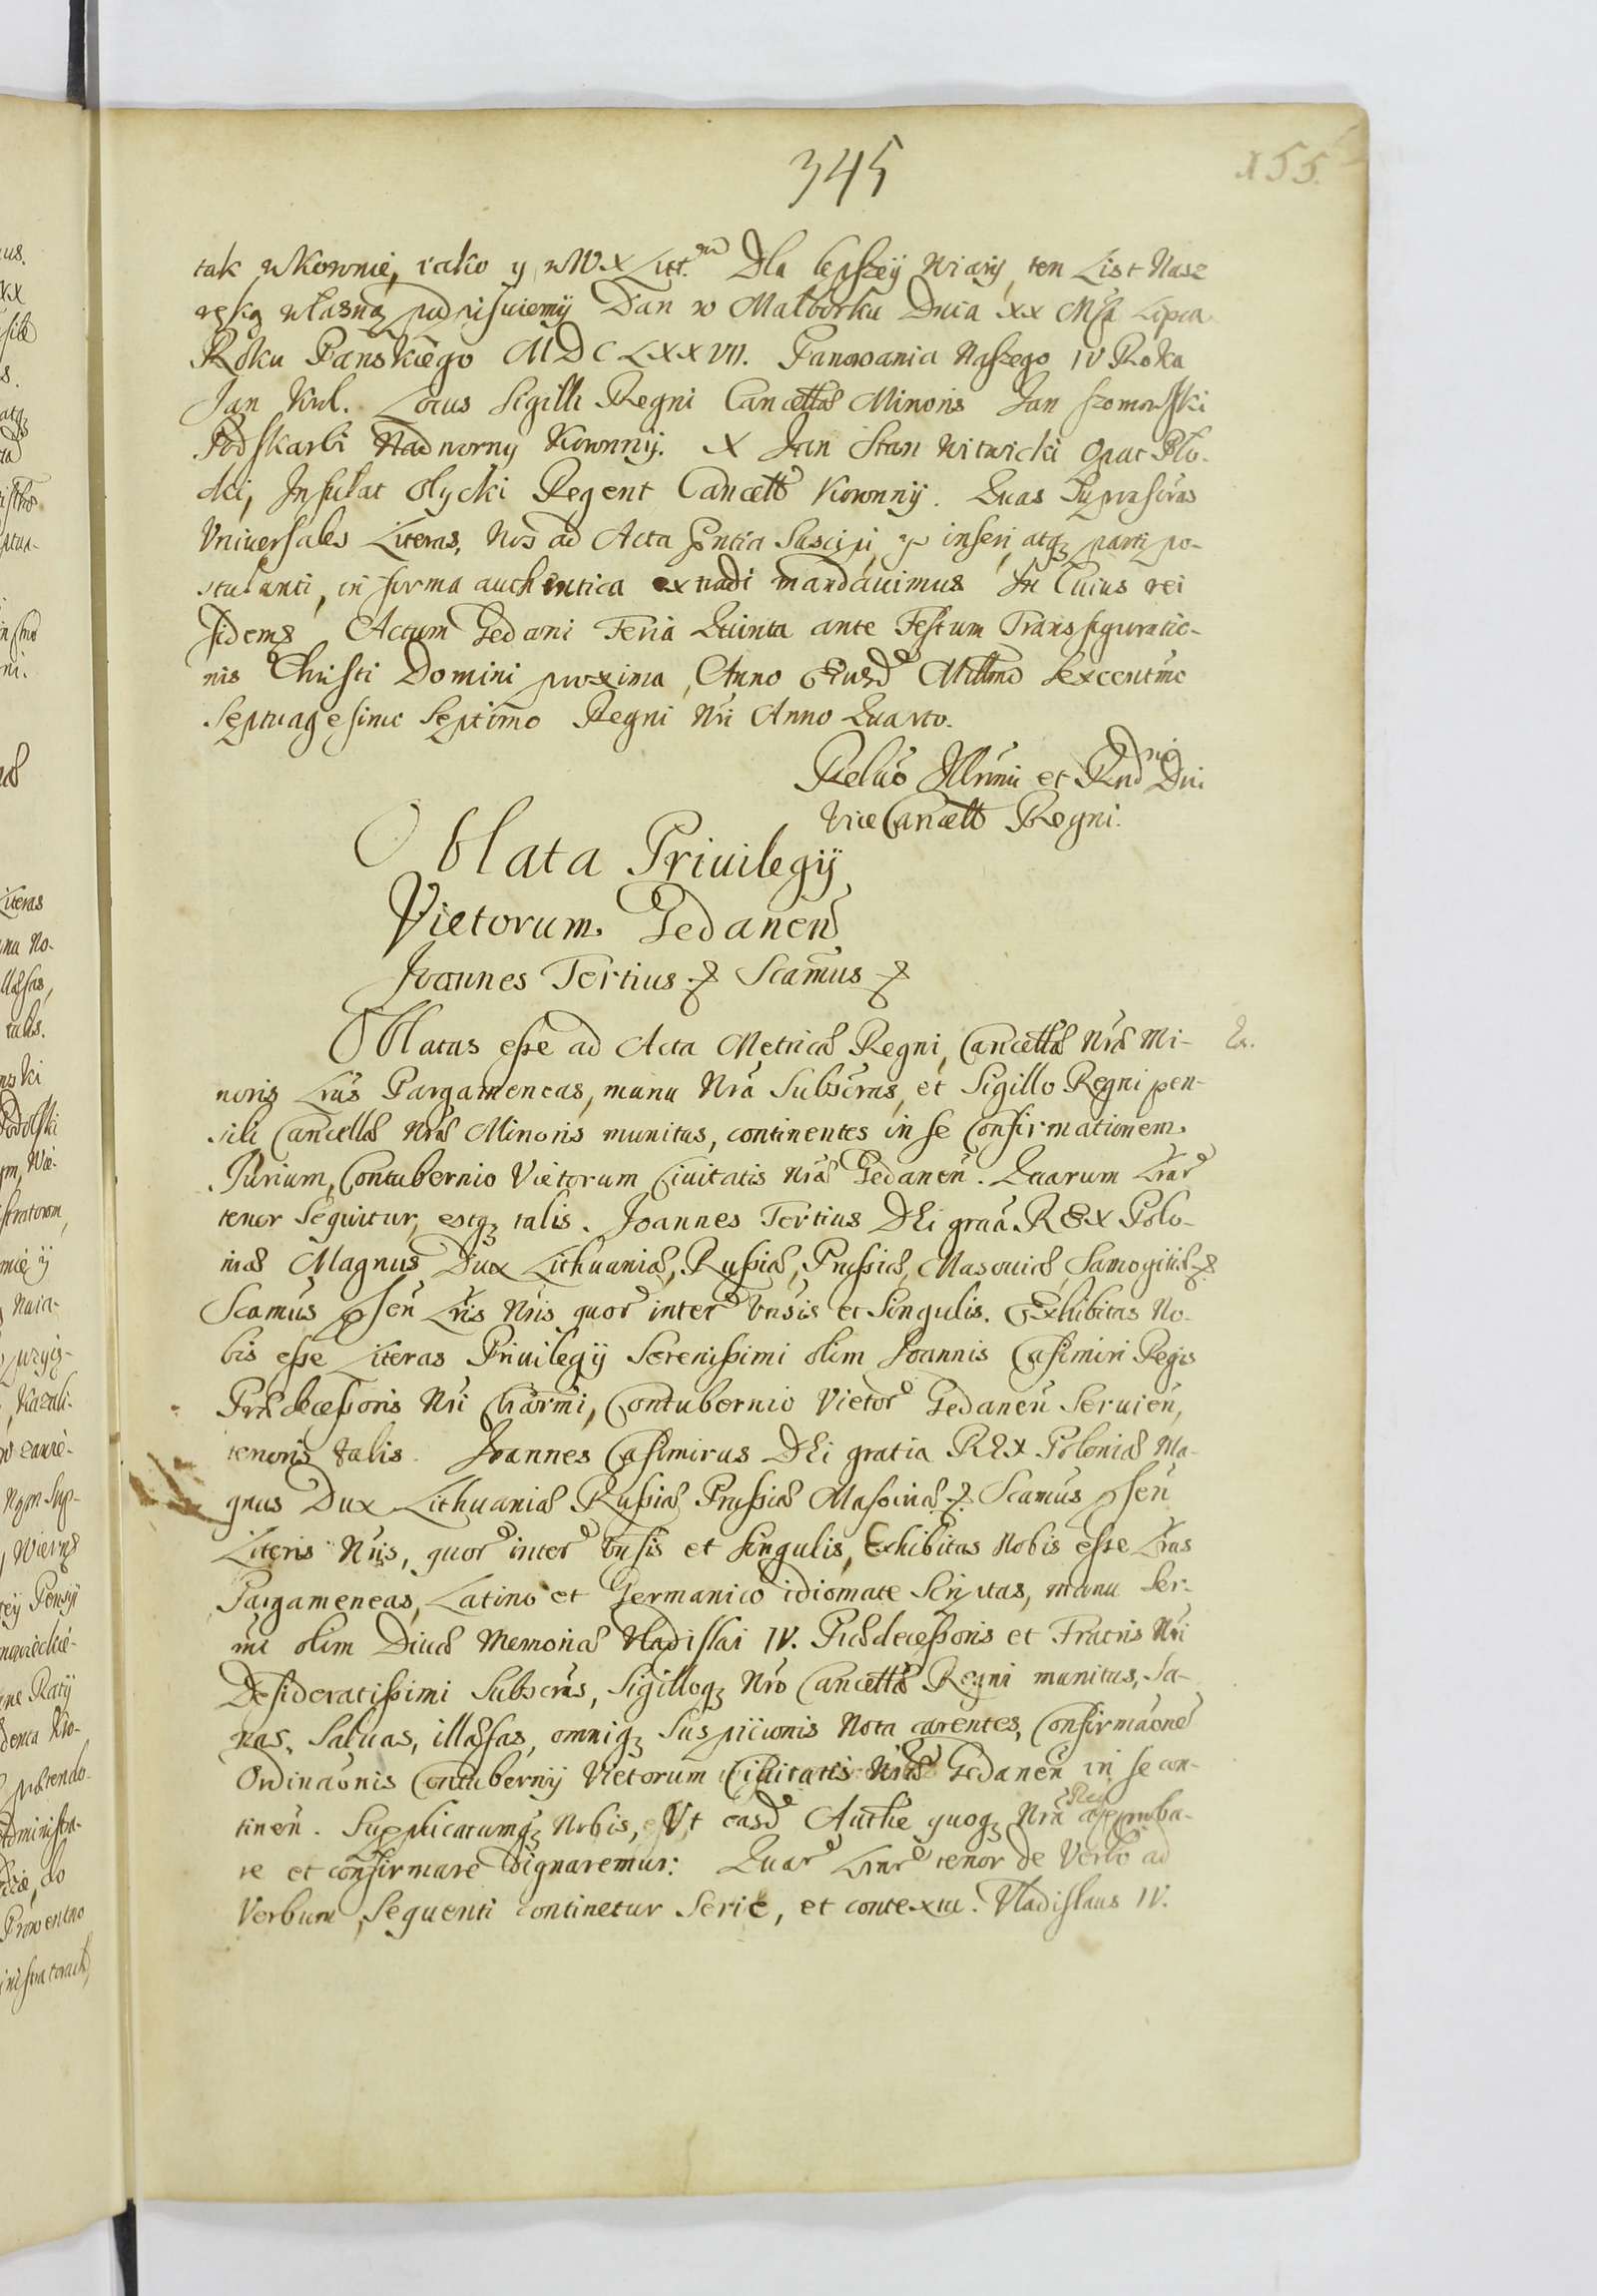 345
155.
tak w Kownie, iako y w W. X Litt.m Dla lepszey Wiary, ten List Nasz
ręką własną podpisuiemy Dan w Malborku Dnia XX Msa Lipca
Roku Panskiego MDCLXXVII. Panowania Naszego IV Roku
Jan Krol. Locus Sigilli Regni Cancellæ Minoris Jan Szomowski
Podskarbi Nadworny Koronny. X Jan Stan Witwicki Opat Plo-
cki, Infulat Olycki Regent Cancell Koronny. Quas Suprascras
Vniuersales Literas, Nos ad Acta Pntia Suscipi, et inseri, atq; parti po-
stulanti, in forma authentica extradi mandauimus In Cuius rei
fidem Actum Gedani Feria Quinta ante Festum Transfiguratio-
nis Christi Domini proxima, Anno Eiusd Millmo Sexcentmo
Septuagesimo Septimo Regni Nri Anno Quarto.
Relaō Illrmi et Rndni Dni
Vice Cancell Regni.
Oblata Priuilegij
Vietorum Gedanen
Joannes Tertius & Scamus &
Oblatas esse ad Acta Metricæ Regni, Cancellæ Nræ Mi-
noris Lras Pargameneas, manu Nra Subscras, et Sigillo Regni pen-
sili Cancellæ Nræ Minoris munitas, continentes in se Confirmationem
Jurium, Contubernio Vietorum Ciuitatis Nræ Gedanen. Quarum Lrar
tenor sequitur, estq; talis. Joannes Tertius DEi graa REX Polo-
niæ Magnus Dux Lithuaniæ, Russiæ, Prussiæ, Masouiæ, Samogitiæ &
Scamus psen Lris Nris quor interē Vnsis et Singulis. Exhibitas No-
bis esse Literas Priuilegij Serenissimi olim Joannis Casimiri Regis
Prædecessoris Nri Charmi, Contubernio Vietor Gedanen Seruien,
tenoris talis. Joannes Casimirus DEi gratia REX Poloniæ Ma-
gnus Dux Lithuaniæ Russiæ Prussiæ Masouiæ & Scamus psen
Literis Nris, quor interē Vnsis et Singulis, Exhibitas Nobis esse Lras
Pargameneas, Latino et Germanico idiomate Scriptas, manu Ser-
mi olim Diuæ Memoriæ Vladislai IV. Prædecessoris et Fratris Nri
Desideratissimi Subscras, Sigilloq; Nro Cancellæ Regni munitas, Sa-
nas, Saluas, illæsas, omniq; Suspicionis Nota carentes, Confirmaōne
Ordinaōnis Contubernij Vietorum Ciuitatis Nræ Gedanen in se con-
tinen. Supplicatumq; Nobis, Vt easd Authe quoq; Nra Reg approba-
re et confirmare dignaremur: Quar Lrar tenor de Verbo ad
Verbum Sequenti continetur Serie, et contextu. Vladislaus IV.